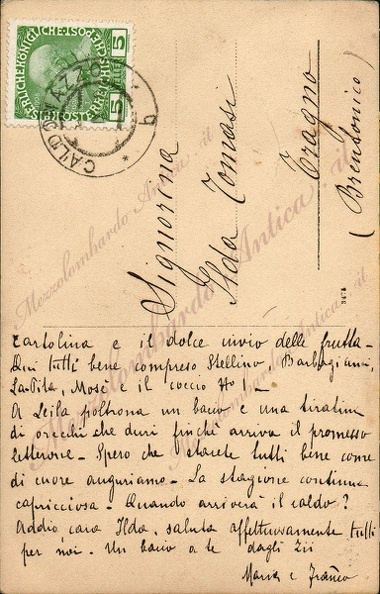 KAISERLICHE KÖNIGLICHE ÖSTERREICHISCHE POST
5 HELLER 5
CALDONAZZO
b
Signorina
Ilda Tomasi
Cragno
(Brentonico)
3476
Mezzolombardo Antica . it
Mezzolombardo Antica . it
Mezzolombardo Antica . it
Cartolina e il dolce invio delle frutta -
Qui tutti bene compreso Stellino, Barbagianni,
La Pita, Mosè e il coccio No 1 -
A Leila poltrona un bacio e una tiratina
di orecchi che duri finchè arriva il promesso
letterone - Spero che starete tutti bene come
di cuore auguriamo - La stagione continua
capricciosa - Quando arriverà il caldo?
Addio, cara Ilda, saluta affettuosamente tutti
per noi. Un bacio a te dagli Zii
e Franco